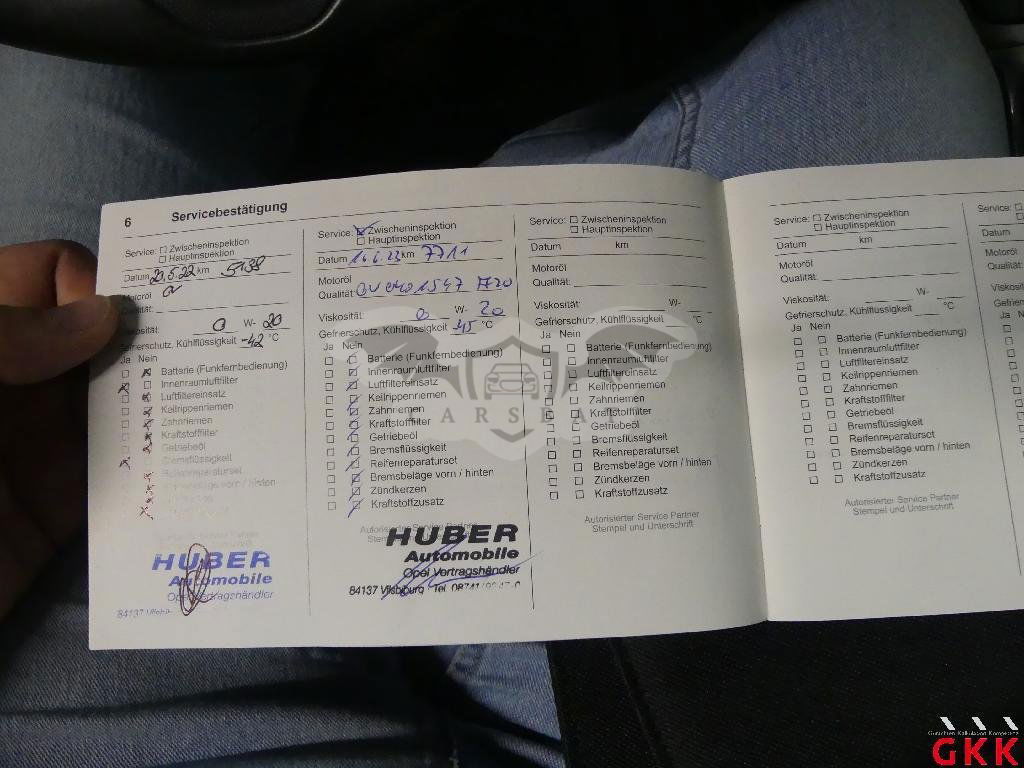 6 Servicebestätigung
Service: Zwischeninspektion
Hauptinspektion
Datum 23.5.22 km 5138
Motoröl
Qualität: OV
Viskosität: 0 W- 20
Gefrierschutz, Kühlflüssigkeit -42 °C
Ja Nein
Batterie (Funkfernbedienung)
Innenraumluftfilter
Luftfiltereinsatz
Keilrippenriemen
Zahnriemen
Kraftstofffilter
Getriebeöl
Bremsflüssigkeit
Reifenreparaturset
Bremsbeläge vorn / hinten
HUBER
Automobile
Opel Vertragshändler
84137 Vilsbib
Service: Zwischeninspektion
Hauptinspektion
Datum 14.6.23 km 7711
Motoröl
Qualität: OV 0401547
Viskosität: 0 W- 20
Gefrierschutz, Kühlflüssigkeit -45 °C
Ja Nein
Batterie (Funkfernbedienung)
Innenraumluftfilter
Luftfiltereinsatz
Keilrippenriemen
Zahnriemen
Kraftstofffilter
Getriebeöl
Bremsflüssigkeit
Reifenreparaturset
Bremsbeläge vorn / hinten
Zündkerzen
Kraftstoffzusatz
Autorisierter Service Partner
HUBER
Automobile
Opel Vertragshändler
84137 Vilsbiburg Tel. 08741
Service: Zwischeninspektion
Hauptinspektion
Datum km
Motoröl
Qualität:
Viskosität: W-
Gefrierschutz, Kühlflüssigkeit °C
Ja Nein
Batterie (Funkfernbedienung)
Innenraumluftfilter
Luftfiltereinsatz
Keilrippenriemen
Zahnriemen
Kraftstofffilter
Getriebeöl
Bremsflüssigkeit
Reifenreparaturset
Bremsbeläge vorn / hinten
Zündkerzen
Kraftstoffzusatz
Autorisierter Service Partner
Stempel und Unterschrift
Service: Zwischeninspektion
Hauptinspektion
Datum km
Motoröl
Qualität:
Viskosität: W-
Gefrierschutz, Kühlflüssigkeit °C
Ja Nein
Batterie (Funkfernbedienung)
Innenraumluftfilter
Luftfiltereinsatz
Keilrippenriemen
Zahnriemen
Kraftstofffilter
Getriebeöl
Bremsflüssigkeit
Reifenreparaturset
Bremsbeläge vorn / hinten
Zündkerzen
Kraftstoffzusatz
Autorisierter Service Partner
Stempel und Unterschrift
Service:
Datum
Motoröl
Qualität:
Viskosität:
Gefrierschutz
Ja Nein
CARSEA
Gutachten Kalkulation Kompetenz
GKK